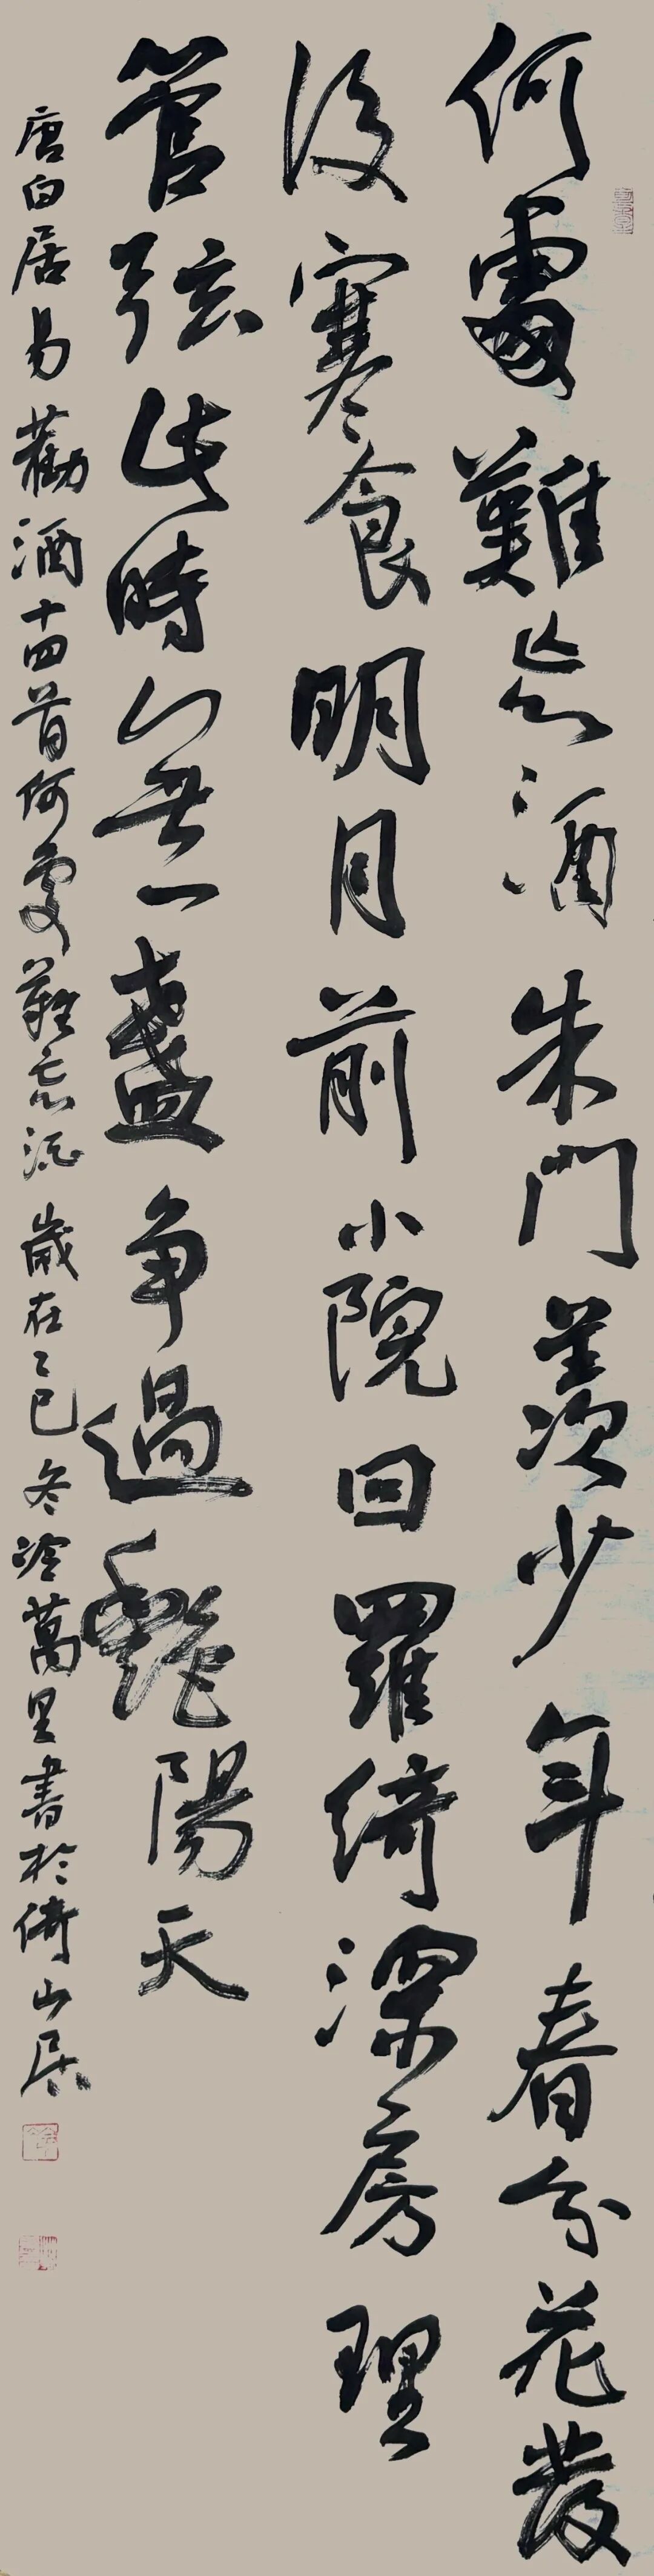 何處難忘酒朱門羨少年春分花發
後寒食明月前小院回羅綺深房理
管弦此時無一盞争過艷陽天
唐白居易勸酒十四首何處難忘酒歲在乙巳冬冷萬里書於倚山居